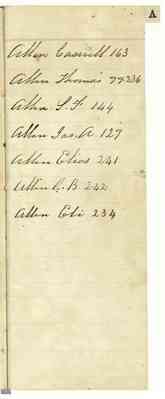 A
Allen Caswell 163
Allen Thomas 77236
Allen S. F. 164
Allen Jas. A. 127
Allen Elias 241
Allen G. B. 242
Allen Eli 234